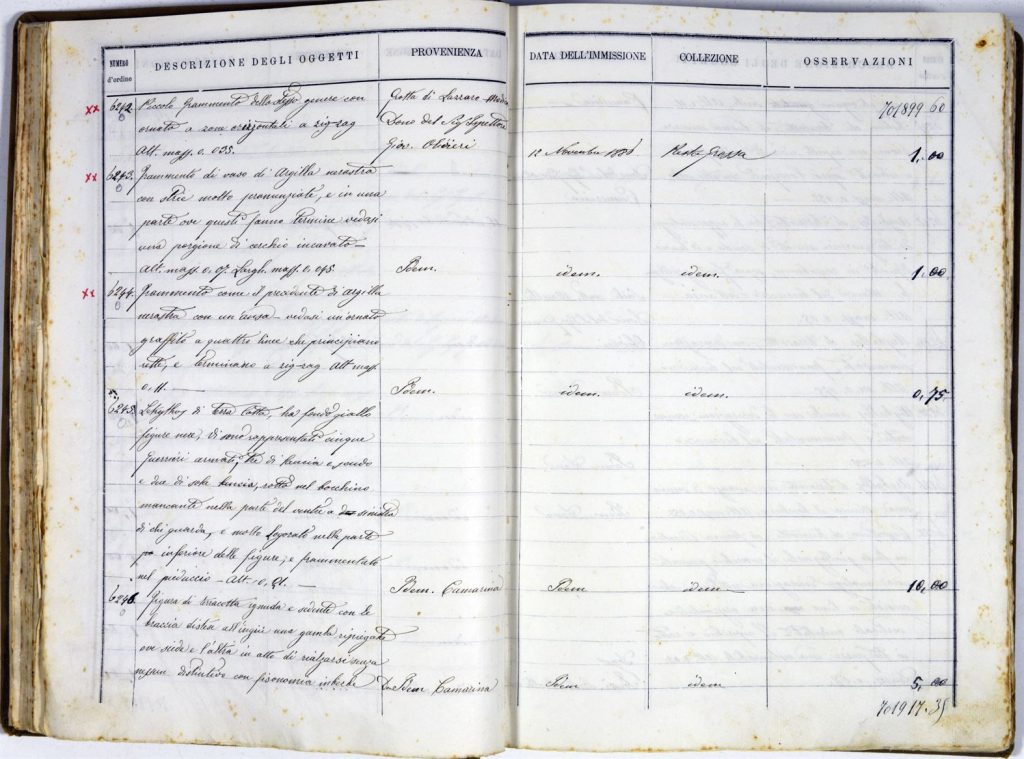 NUMERO d'ordine DESCRIZIONE DEGLI OGGETTI PROVENIENZA DATA DELL'IMMISSIONE COLLEZIONE OSSERVAZIONI
701899 60
xx 6242 Piccolo frammento dello stesso genere con Grotta di Lazzaro
ornato a zone orizzontali a zig-zag Dono del Sig Ispettore
Alt. mass. 0. 035. Giov. 12 Novembre 1,00
xx 6243. Frammento di vaso di Argilla nerastra
con strie molto pronunziate, e in una
parte ove questi fanno termine vedasi
una porzione di cerchio incavato—
Alt. mass. 0, 07. Largh. mass. 0, 095. Idem. idem. idem. 1,00
xx 6244. Frammento come il precedente di Argilla
nerastra con un'ansa - vedasi un'ornato
graffito a quattro linee che principiano
rette, e terminano a zig-zag Alt mass
0, 11. — Idem. idem. idem. 0,75
6245. Lekythos di Terra Cotta, ha fondo giallo
figure nere, vi sono rappresentati cinque
guerrieri armati, tre di lancia e scudo
e due di sola lancia, rotto nel bocchino
mancante nella parte del ventre a sinistra
di chi guarda, e molto logorato nella parte
inferiore delle figure, e frammentato
nel pieduccio - Alt. 0, 21. — Idem. Camarina Idem idem 10,00
6246 Figura di terracotta ignuda e sedente con le
braccia distese all'ingiù una gamba ripiegata
ove siede e l'altra in atto di rialzarsi senza
nessun distintivo con fisonomia Idem Camarina Idem idem 5,00
701917.35